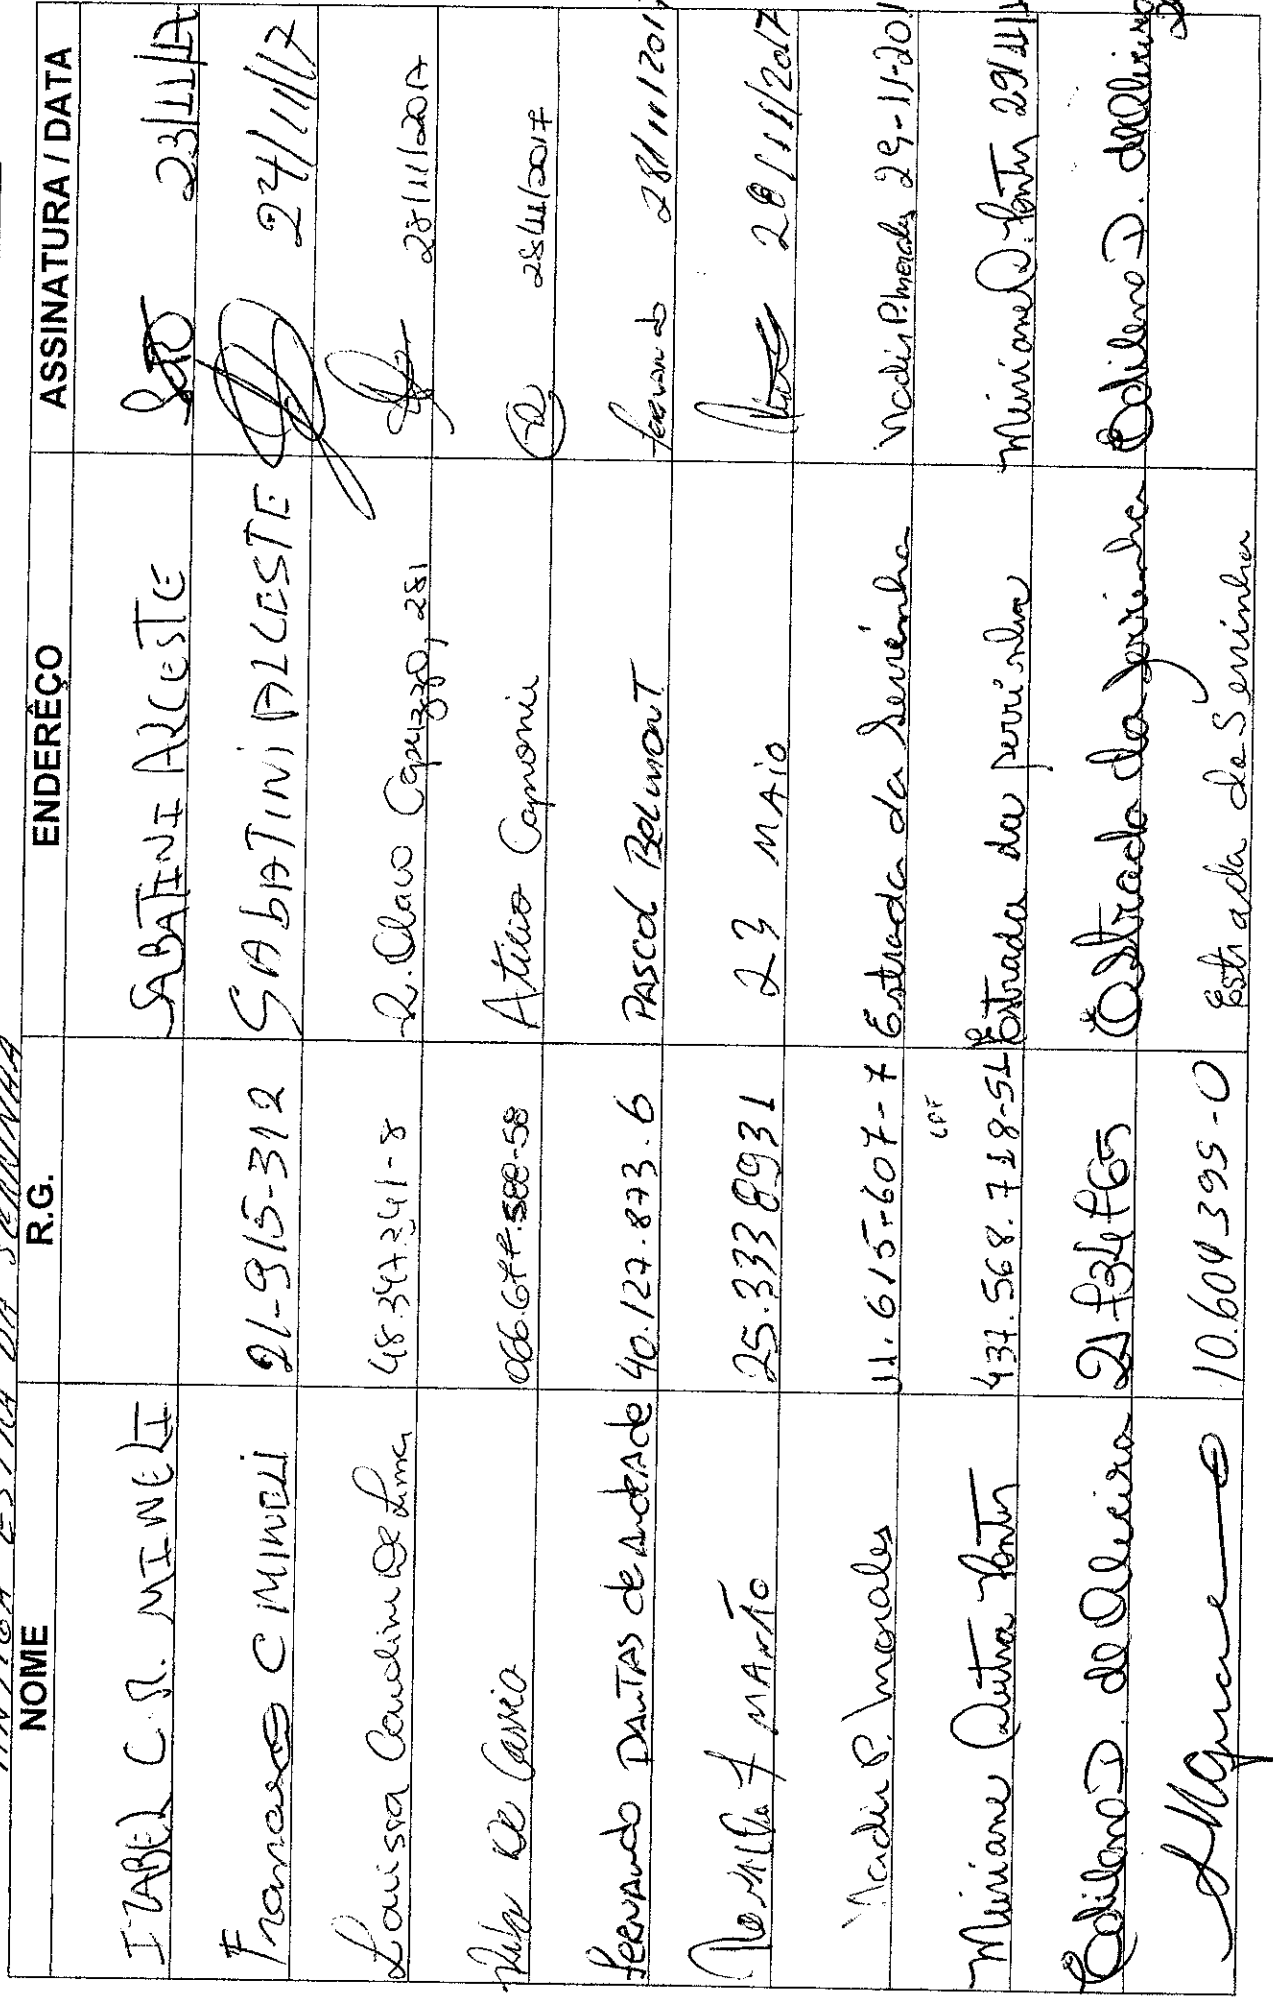 ANTIGA ESTRADA DA SERRINHA
NOME R.G. ENDERÊÇO ASSINATURA / DATA
IZABEL C. R. MINELI SABATINI ALCESTE 23/11/17
C MINELI 21-915-312 SABATINI ALCESTE 24/11/17
Larissa Carolina De Lima 48.347.341-8 R. Olavo Capuzzo, 281 28/11/2017
Rita De Cassia 066.677.588-58 Atilio 28/11/2017
Fernando DANTAS de ANDRADE 40.127.873.6 PASCOL BELMONT Fernando 28/11/2017
25.3338931 23 MAIO 28/11/2017
Nadir P. Morales 11.615-607-7 Estrada da Serrinha Nadir P. Morales 29-11-201
Miriane Dutra 437.568.718-51 CPF Estrada da serrinha Miriane D. 29/11/1
Edilene D. de Oliveira 21.734765 Estrada da serrinha Edilene D. de Oliveira
10.604.395-0 Estrada da Serrinha